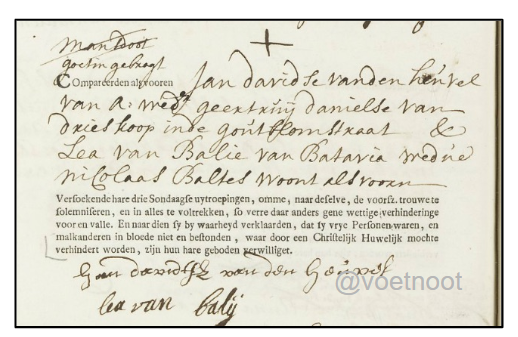 man doot
goetin gebregt
Compareerden als vooren Jan davidse vanden heuvel
van A: wedr geertruij danielse van
drieskoop inde goutblomstraat &
Lea van Balie van Batavia wedue
nicolaas Baltes woont als voorn
Versoekende hare drie Sondaagse uytroepingen, omme, naar deselve, de voorsz. trouwe te
solemniseren, en in alles te voltrekken, so verre daar anders gene wettige verhinderinge
voor en valle. En naar dien sy by waarheyd verklaarden, dat sy vrye Personen waren, en
malkanderen in bloede niet en bestonden, waar door een Christelijk Huwelijk mochte
verhindert worden, zijn hun hare geboden verwilliget.
Jan davidsz van den heuvel
@voetnoot
lea van balij